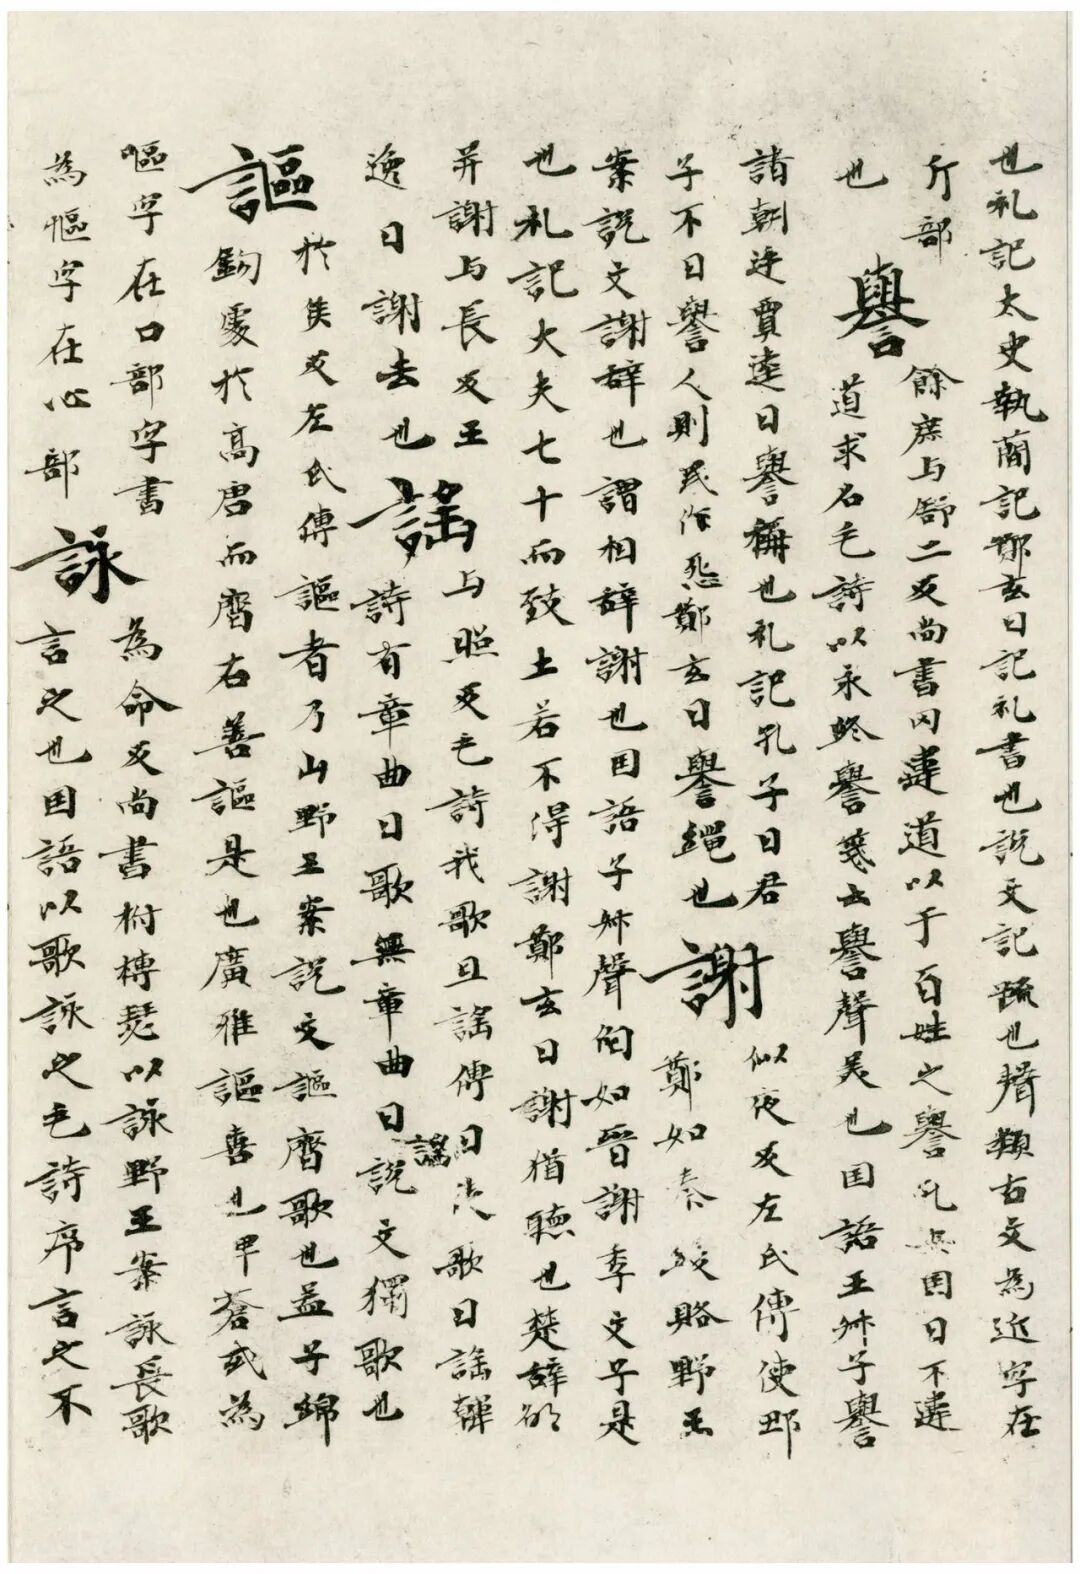 也礼記太史執蕳記鄭玄曰記礼書也説文記疏也聲類古文為近字在
斤部
譽 餘庶与舒二反尚書罔違道以干百姓之譽孔安国曰不違
也 道求名毛詩以永終譽箋云譽聲美也国語王叔子譽
諸朝廷賈逵曰譽稱也礼記孔子曰君
子不曰譽人則民作鄭玄曰譽繩也
謝 似夜反左氏傳使
鄭如秦賂野王
案説文謝辞也謂相辞謝也国語子叔聲伯如晉謝季文子是
也礼記大夫七十而致士若不得謝鄭玄曰謝猶聴也楚辞
并謝与長友王逸曰謝去也
謡 与照反毛詩我歌且謡傳曰徒歌曰謡韓
詩有章曲曰歌無章曲曰謡説文獨歌也
謳 於侯反左氏傳謳者乃山野王案説文謳齊歌也孟子綿
駒處於高唐而齊右善謳是也廣雅謳喜也埤蒼或為
嘔字在口部字書
為慪字在心部
詠 為命反尚書拊搏琴以詠野王案詠長歌
言之也国語以歌詠之毛詩序言之不